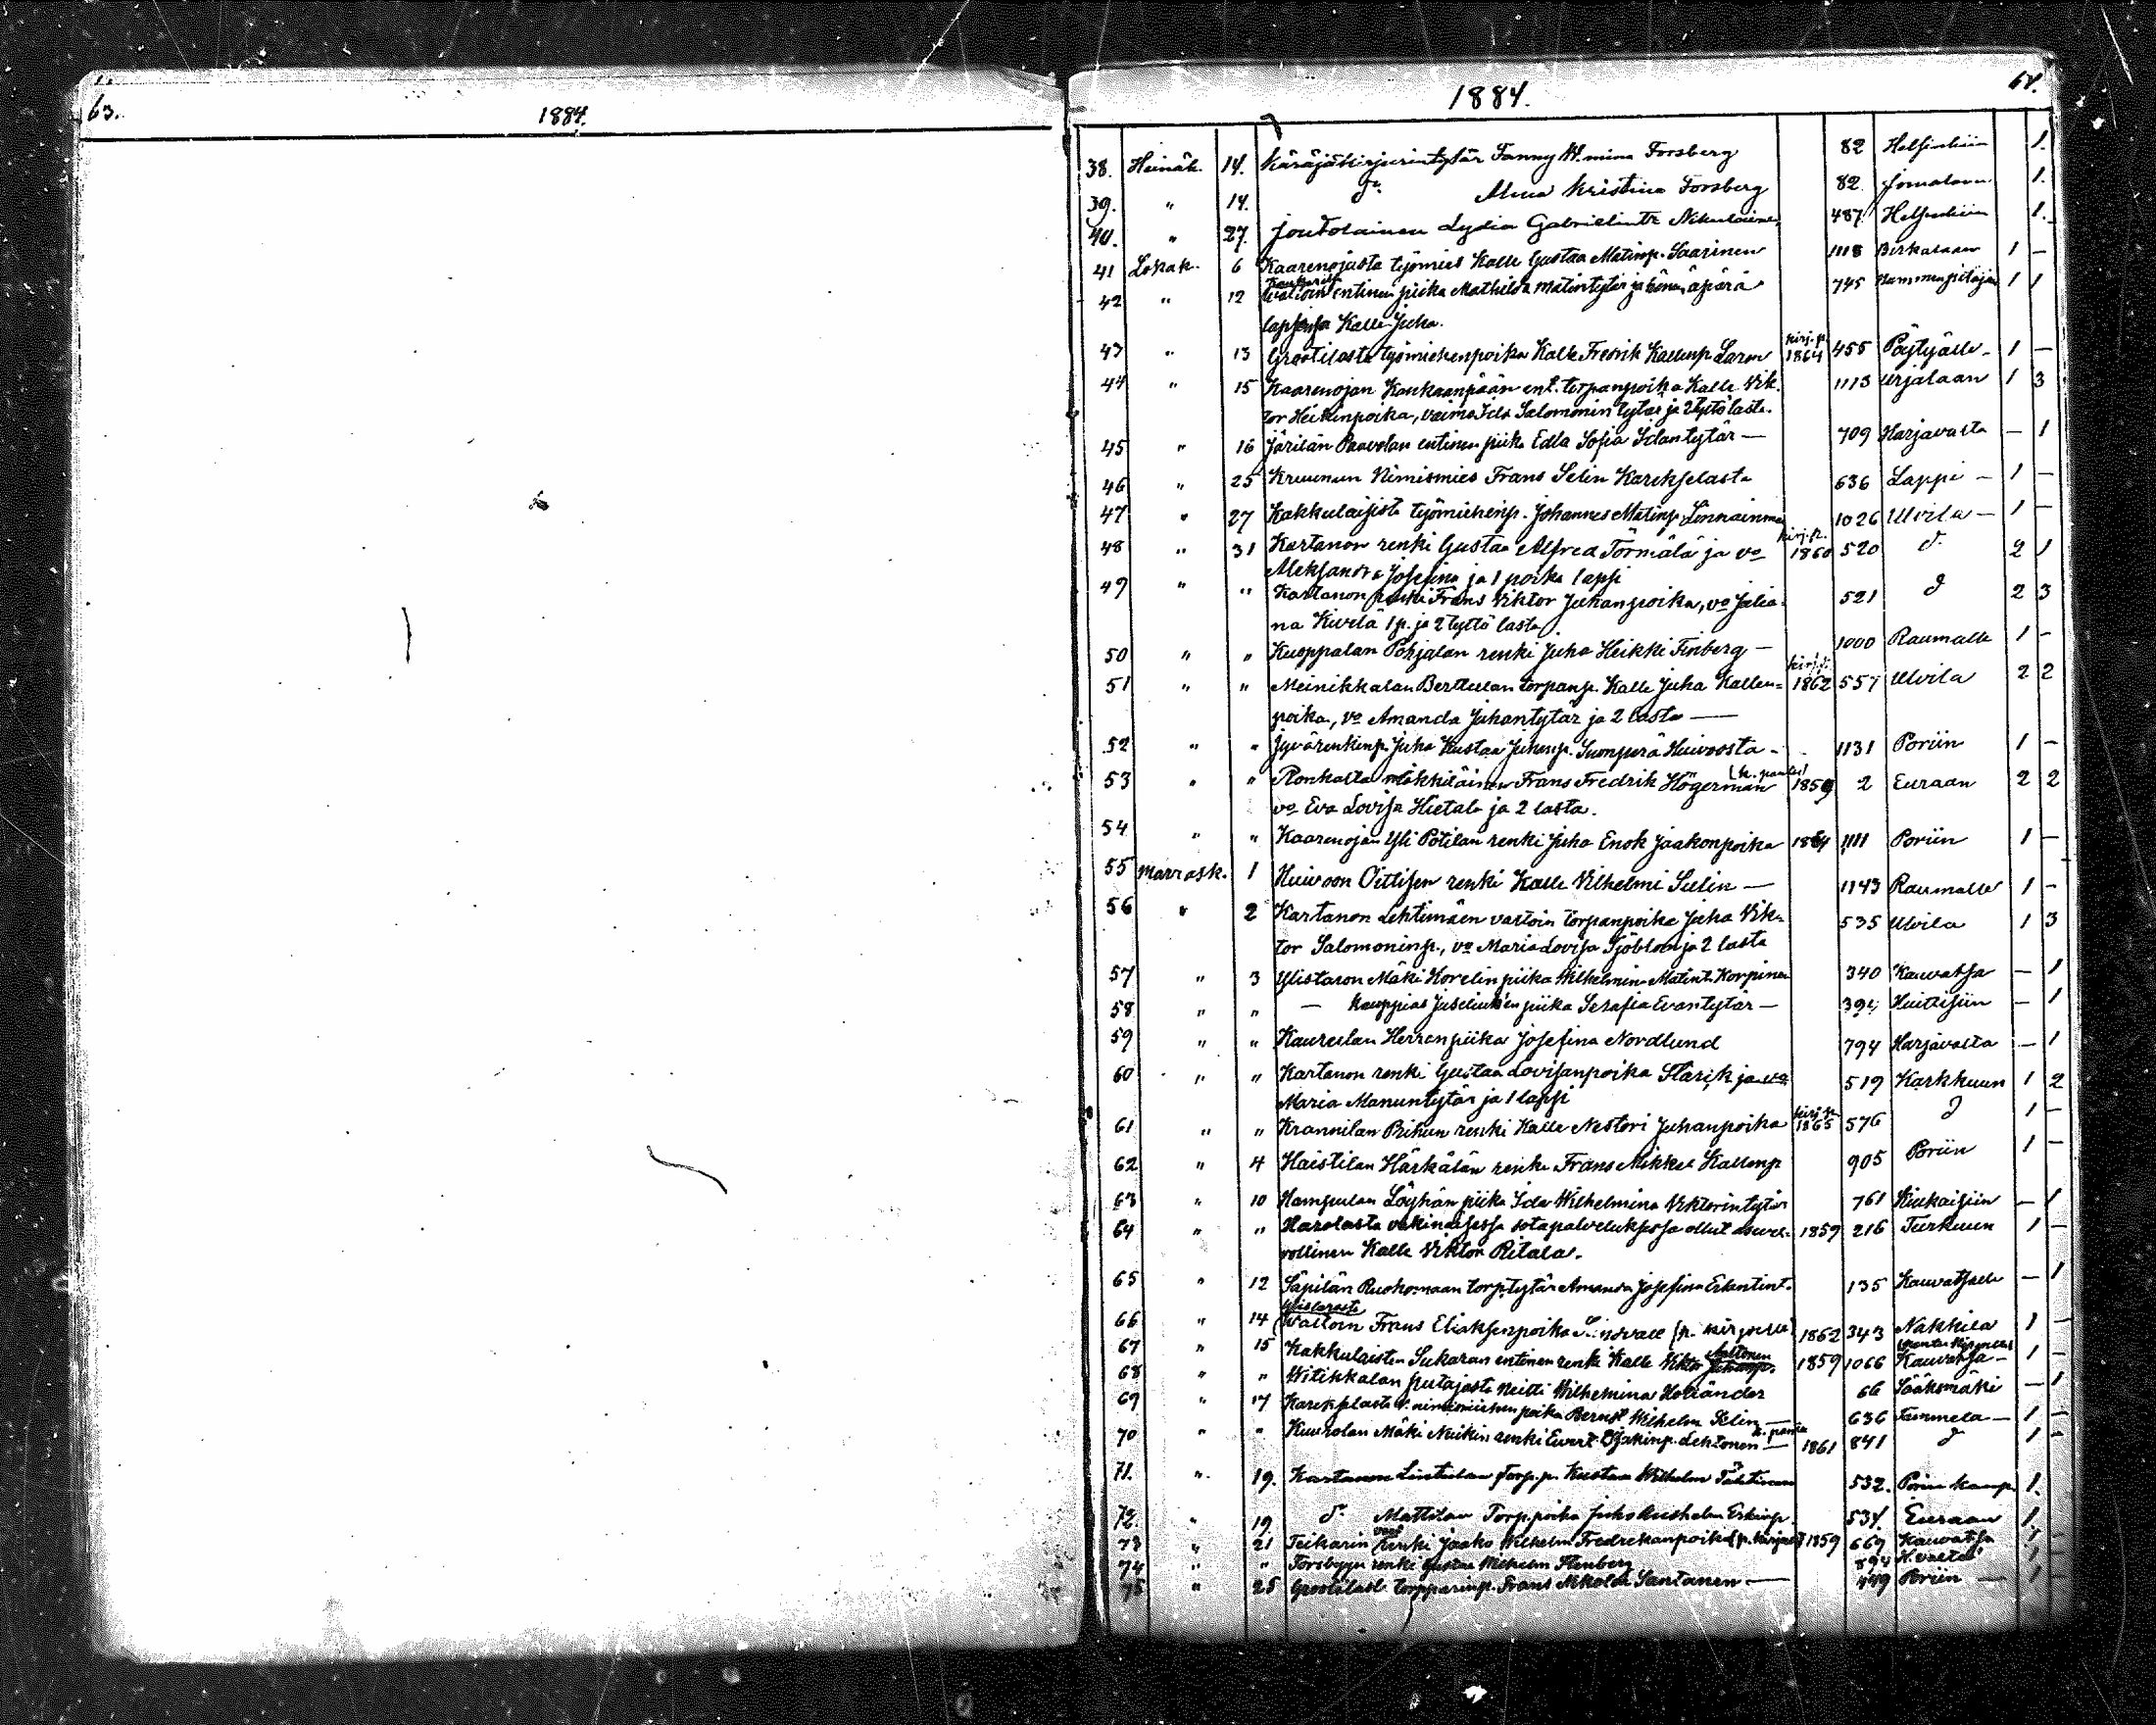 63.
1884.
1884.
64.
38. Heinäk. 14. Käräjäkirjurintytär Fanny W.mina Forsberg 82 Helsinkiin 1.
39. " 14. d:o Alma Kristina Forsberg 82. 1.
40. " 27. Lydia Gabrielintr 487 Helsinkiin 1.
41 Lokak. 6 Kaarenojasta työmies Kalle Gustaa Matinp. Saarinen 1118 Birkalaan 1 —
42 " 12 entinen piika Mathilda Matintytär ja hänen äpärä 745 1 1
lapsensa Kalle Juha.
43 " 13 Grootilasta työmiehenpoika Kalle Fredrik Kallenp. kirj. p. 1864 455 Pöytyälle - 1 —
44 " 15 Kaarenojan Kaukaanpään ent. torpanpoika Kalle Vik- 1113 Urjalaan 1 3
tor Heikinpoika, vaimo Ida Salomonintytär ja 2 tyttölasta.
45 " 16 Järilän Paavolan entinen piika Edla Sofia — 709 Harjavalta — 1
46 " 25 Kruunun Nimismies Frans Selin Kareksilasta 636 Lappi — 1 —
47 " 27 Kakkulaisista työmiehenp. Johannes Matinp. 1026 Ulvila — 1 —
48 " 31 Kartanon renki Gustaa Alfred Törmälä ja vo kirj. p. 1860 520 d:o 2 1
Aleksandra Josefina ja 1 poika lapsi
49 " " Kartanon renki Frans Viktor Juhanpoika, vo Julia- 521 d:o 2 3
na Kivelä 1 p. ja 2 tyttö lasta
50 " " Kuoppalan Pohjalan renki Juha Heikki Finberg — 1000 Raumalle 1 -
51 " " Meinikkalan Berttulan torpanp. Kalle Juha Kallen= kirj. p. 1862 557 Ulvila 2 2
poika, vo Amanda Juhantytär ja 2 lasta —
52 " " Juha Kustaa Juhanp. Suonperä Huivoosta - 1131 Poriin 1 -
53 " " Ronkasta mäkkiläinen Frans Fredrik Högerman 1859 2 Euraan 2 2
vo Eva Lovisa Hietala ja 2 lasta.
54 " " Kaarenojan Yli Potilan renki Juha Enok Jaakonpoika 1864 1111 Poriin 1 —
55 Marrask. 1 Huivoon Oittisen renki Kalle Vilhelmi Selin — 1143 Raumalle 1 -
56 " 2 Kartanon Lehtimäen vastoin torpanpoika Juha Vik- 535 Ulvila 1 3
tor Salomoninp., vo Maria Lovisa Sjöblom ja 2 lasta
57 " 3 Ylistaron Mäki Horelin piika Wilhelmina Matint. Korpinen 340 Kauvatsa — 1
58 " " — kauppias Juselius'en piika Serafia Evantytär — Huittisiin — 1
59 " " Herran piika Josefina Nordlund 794 Harjavalta — 1
60 " " Kartanon renki Gustaa Lovisanpoika Starck ja vo 519 Karkkuun 1 2
Maria Manuntytär ja 1 lapsi
61 " " Krannilan renki Kalle Nestori Juhanpoika kirj. p. 1865 576 d:o 1 -
62 " 4 Haistilan Härkälän renki Frans Mikkel Kallenp 905 Poriin 1 —
63 " 10 Hampulan Löyhän piika Ida Wilhelmina Viktorintytär 761 Kiukaisiin — 1
64 " " Harolasta vakinaisessa sotapalveluksessa ollut asevel- 1859 216 Turkuun 1 —
vollinen Kalle Viktor Ritala.
65 " 12 Säpilän Ruohomaan torp.tytär Amanda Josefina 135 Kauvatsalle — 1
Ylistarosta
66 " 14 Frans Eliaksenpoika (p. kirjoilla) 1862 343 Nakkila 1 —
67 " 15 Kakkulaisten Sukaran entinen renki Kalle Viktor Anttonen 1859 1066 Kauvatsa — 1 —
68 " " Witikkalan neiti Wilhelmina Holländer 66 Sääksmäki — 1
69 " 17 Karekslasta v. nimismiehen poika Bernd Wilhelm Selin — 636 Tammela — 1 —
70 " " Kuurolan Mäki renki Evert Lehtonen — 1861 841 d:o 1 —
71. " 19. Kartanon Lintulan Torp.p. Kustaa Wilhelm 532. Porin kaup. 1.
72. " 19 d:o Mattilan Torp.poika Juho Erkinp. 534. Euraan 1.
73 " 21 Teikarin renki Jaako Wilhelm Fredrekanpoika 1859 669 Kauvatsa 1 —
74 " " Torsbyyn renki Gustaa Wilhelm Stenberg 894 1 —
75 " 25 torpparinp. Frans Nikolai Santanen — 449 Poriin — 1 —